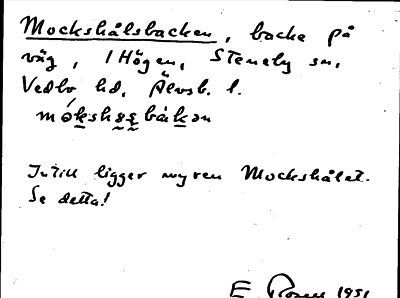 Mockshålsbacken, backe på
väg, i Högen, Steneby sn,
Vedbo hd, Älvsb. l.
Intill ligger myren Mockshålet.
Se detta!
E. Rosén 1951